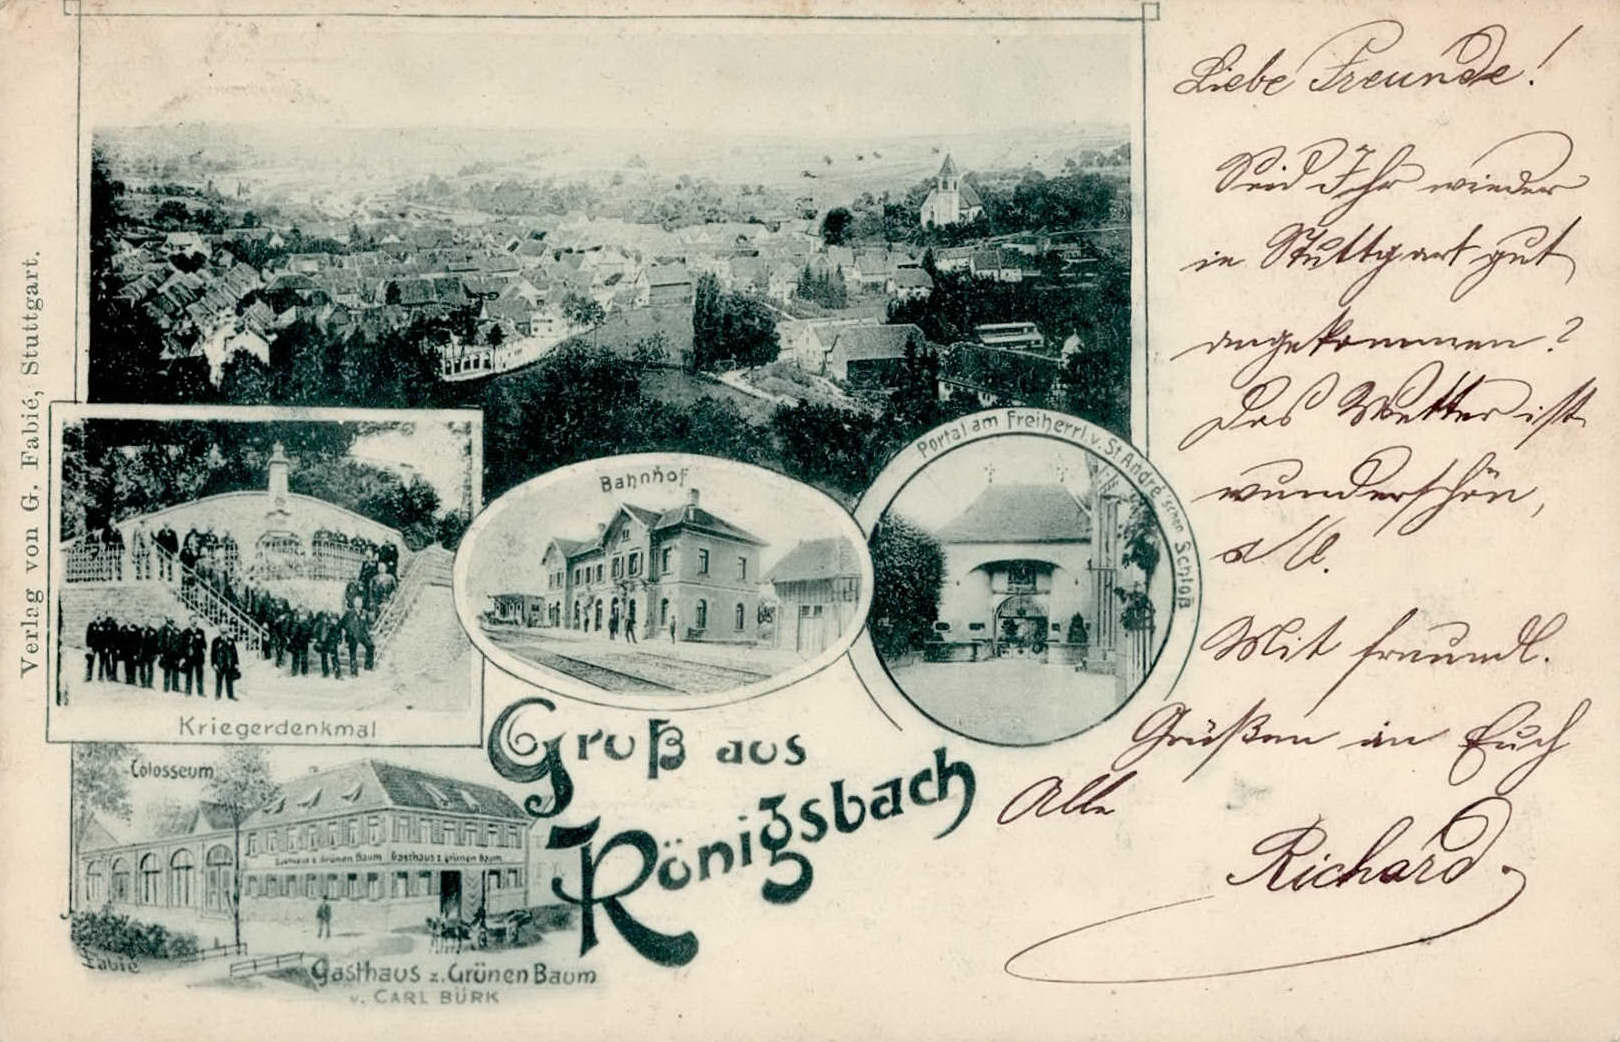 Verlag von G. Fabié, Stuttgart.
Kriegerdenkmal
Bahnhof
Portal am Freiherrl. v. St André'schen Schloß
Gruß aus
Königsbach
Colosseum
Gasthaus z. Grünen Baum Gasthaus z. grünen Baum
Fabié
Gasthaus z. Grünen Baum
v. CARL BÜRK
Liebe Freunde!
Seid Ihr wieder
in Stuttgart gut
angekommen?
Das Wetter ist
wunderschön,
Mit freundl.
Grüßen an Euch
Alle
Richard.